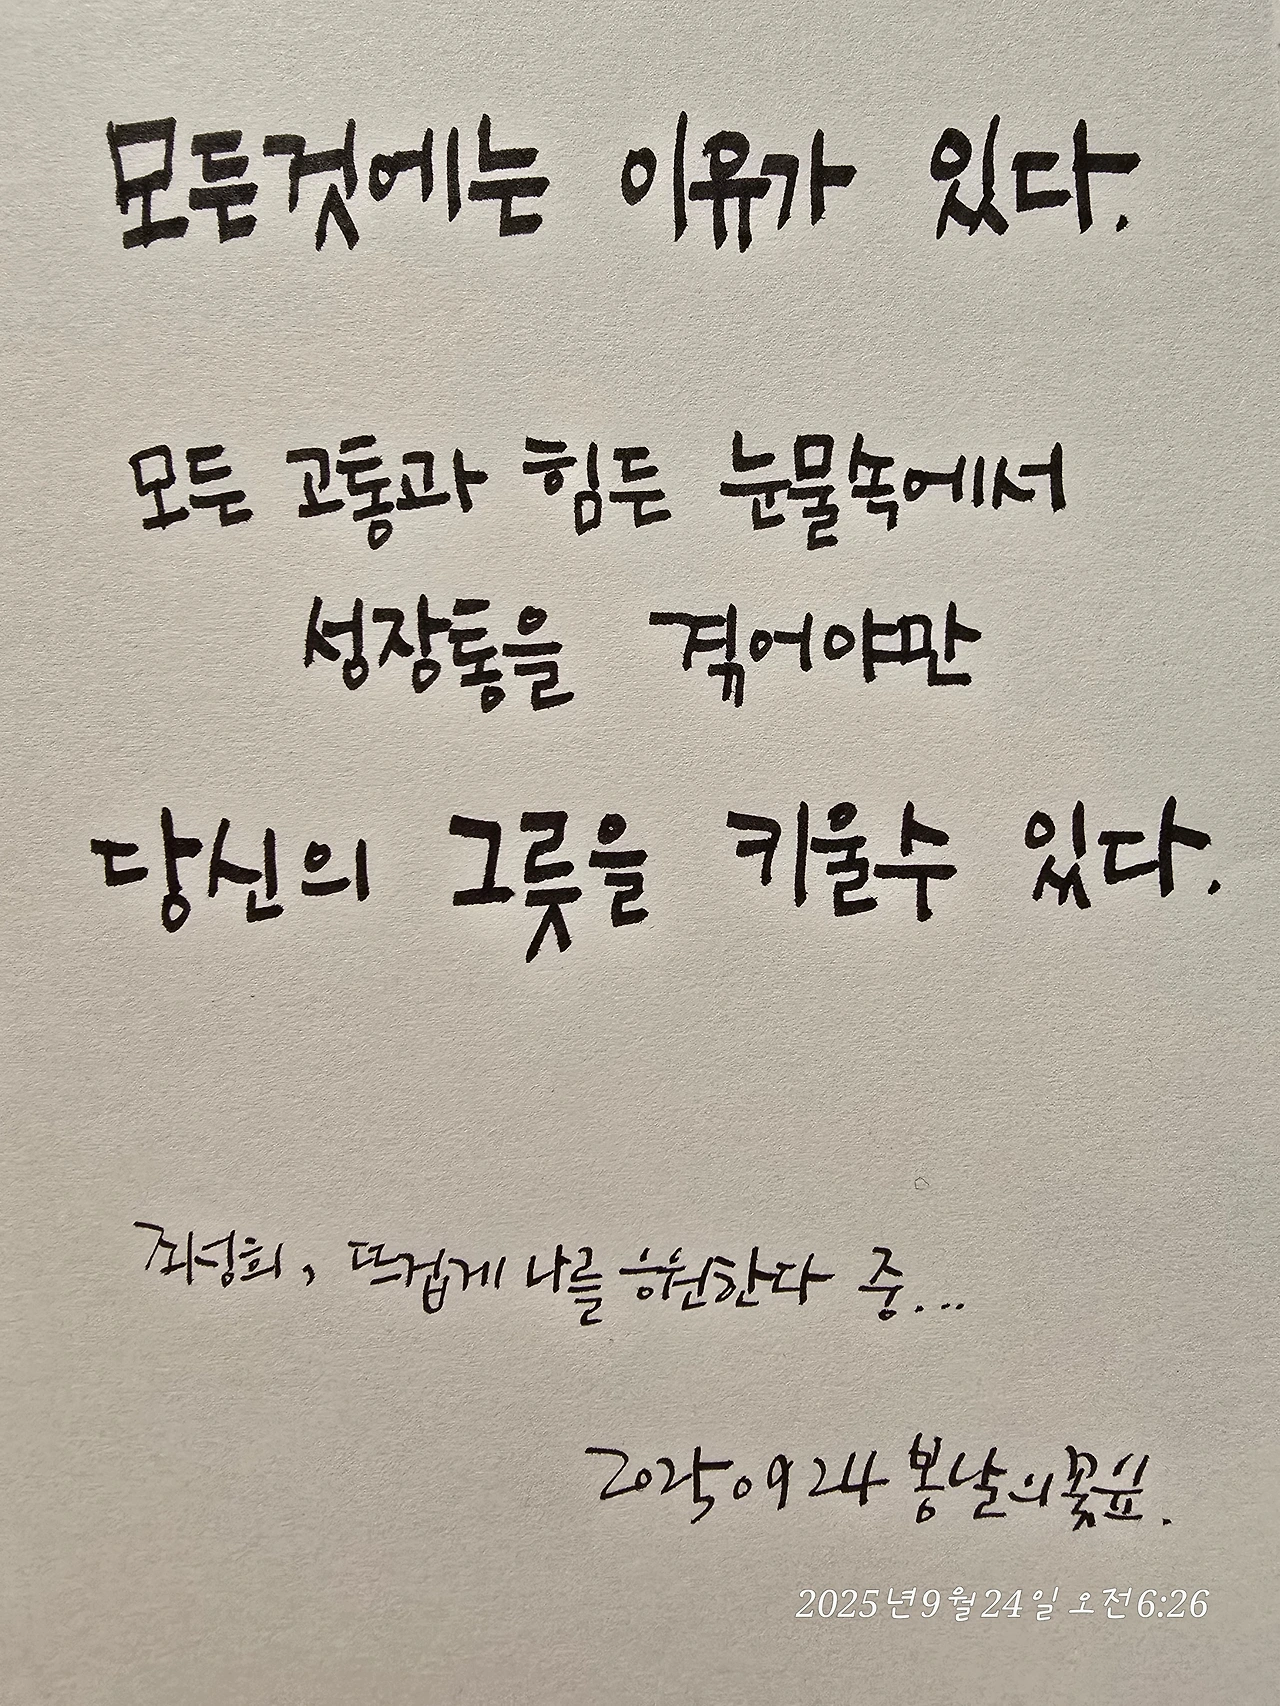 모든것에는 이유가 있다.
모든 고통과 힘든 눈물속에서
성장통을 겪어야만
당신의 그릇을 키울수 있다.
최성희, 뜨겁게 나를 응원한다 중...
20250924 봄날의꽃숲.
2025년 9월 24일 오전 6:26